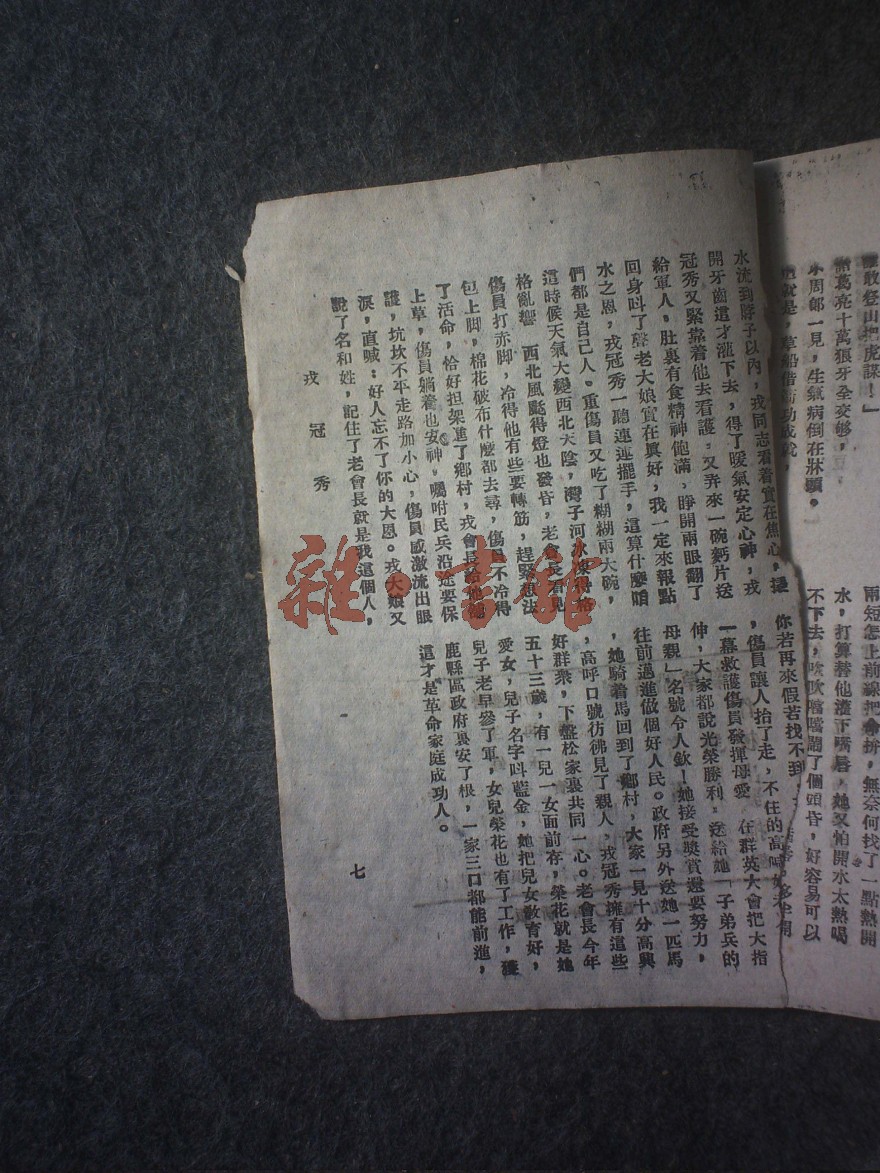 雖敢登山把虎謀！」
諸葛亮十萬狼牙全交够，
周郎一見，生氣病倒在牀頭。
就是，草船借箭功成就，
兩短怎上前線把命拚，無奈何找了一點熱開
水，打算替他灌下嘴唇，她又怕開水太熱喝
不下去，吹吹嘴嘴鬧了個頭昏，好容易可以
水流到脖子以內，戎同志看着實在焦心，
開牙齒這才灌下去，得了暖氣安定心神，戎
冠秀又緊靠着他去看護。又弄來一碗麪片送
給軍人。肚裏有食精神飽滿，睜開兩眼翻了
回身叫了聲老大娘實在眞好，我一定來報點
水之恩，戎冠秀一聽連連擺手，這算什麼咱
們都是自己人。重傷員又吃了糊糊兩大碗，
這時候天氣大變西北天陰，灣子河水凍得格
格亂響　西北風颳得燈也發昏，老會長看見
傷員打赤脚，冷得他有些要轉筋，趕緊想法
包上脚，棉花破布什麼都去尋，傷員不冷得
了活命，恰好担架進了鄉村，戎會長給他
上草，傷員躺着也安神，囑咐民兵沿途要保
護，坑坎不平走路加小心，傷員感激流出眼
淚，直喊：好人忘不了你的大恩。戎大娘又
說了名和姓，記住了老會長就是我這個人，
你若再來假若找不到
，傷員讓人抬了走，不住的高喊
一幕救護傷員發揮母愛　在群英大會把大指
伸，大家都說光榮勝利，送給她「子弟兵的
母親」名號令人欽！她接受獎賞還要努力，
往前邁進做個好人民。政府另外送她一匹馬
，她騎着馬回到了鄉村，大家一見十分高興
，高呼口號彷彿見了親人，戎冠秀擁有這些
好群衆，下盤松家裏共同一心。老會長今年
五十三歲，有一兒一女面前存，榮花就是她
愛女，兒子名字叫藍金，她把兒女教育好，
兒子老早參了軍，女兒榮花也有了工作，
鹿縣區政府裏安了根，一家三口都能前進，
這才是革命家庭成功人。
戎冠秀
七
雜·書館